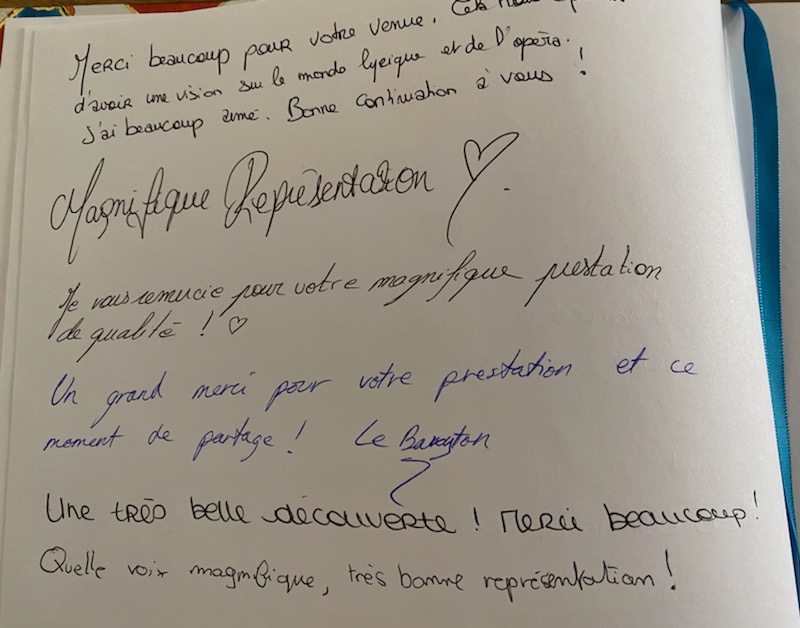 Merci beaucoup pour votre venue. Cela nous
d'avoir une vision sur le monde lyrique et de l'opéra.
J'ai beaucoup aimé. Bonne continuation à vous !
Magnifique Représentation ♡.
Je vous remercie pour votre magnifique prestation
de qualité ! ♡
Un grand merci pour votre prestation et ce
moment de partage ! Le
Une très belle découverte ! Merci beaucoup !
Quelle voix magnifique, très bonne représentation !